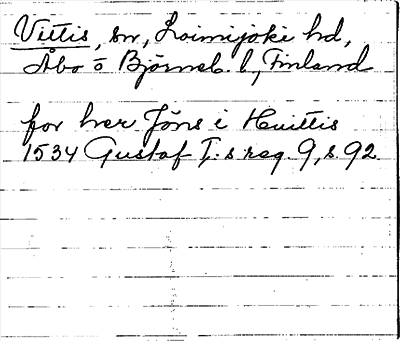 Vittis, sn, Loimijoki hd,
Åbo o Björneb. l, Finland
for her Jöns i Huittis
1534 Gustaf I:s reg. 9, s. 92